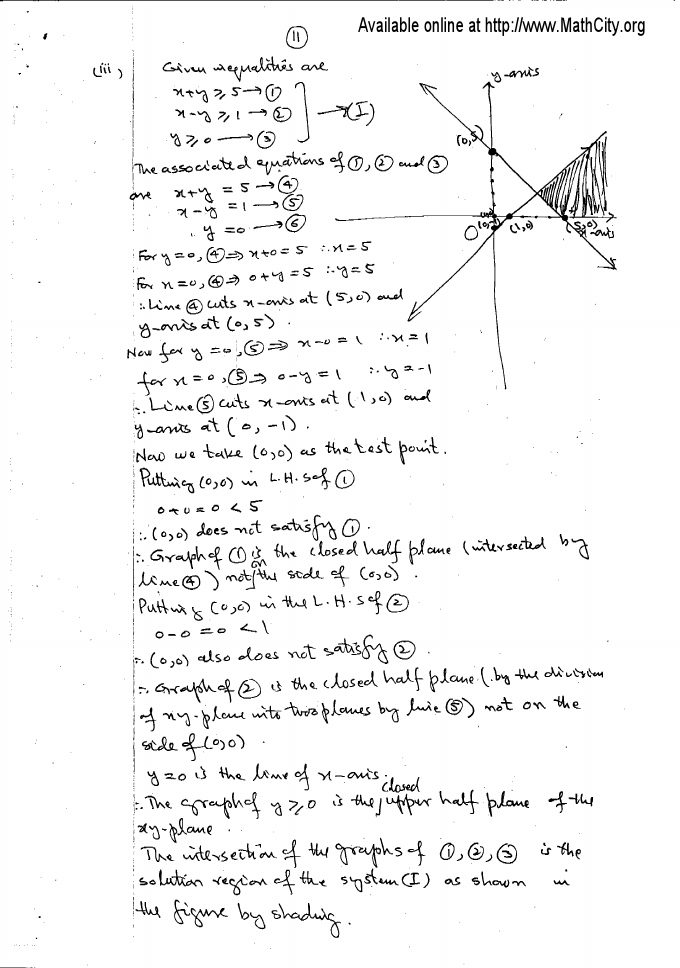 Available online at http://www.MathCity.org
(11)
(iii) Given inequalities are
x+y ≥ 5 → ①
x-y ≥ 1 → ②
y ≥ 0 → ③
→ (I)
The associated equations of ①, ② and ③
are x+y = 5 → ④
x-y = 1 → ⑤
y = 0 → ⑥
For y=0, ④ ⇒ x+0=5 ∴ x=5
For x=0, ④ ⇒ 0+y=5 ∴ y=5
∴ Line ④ cuts x-axis at (5,0) and
y-axis at (0,5).
Now for y=0, ⑤ ⇒ x-0=1 ∴ x=1
for x=0, ⑤ ⇒ 0-y=1 ∴ y=-1
∴ Line ⑤ cuts x-axis at (1,0) and
y-axis at (0,-1).
Now we take (0,0) as the test point.
Putting (0,0) in L.H.S of ①
0+0=0 < 5
∴ (0,0) does not satisfy ①.
∴ Graph of ① is the closed half plane (intersected by
line ④) not on the side of (0,0).
Putting (0,0) in the L.H.S of ②
0-0=0 < 1
∴ (0,0) also does not satisfy ②.
∴ Graph of ② is the closed half plane (by the division
of xy-plane into two planes by line ⑤) not on the
side of (0,0).
y=0 is the line of x-axis.
∴ The graph of y ≥ 0 is the closed upper half plane of the
xy-plane.
The intersection of the graphs of ①, ②, ③ is the
solution region of the system (I) as shown in
the figure by shading.
y-axis
(0,5)
O
(0,-1)
(1,0)
(5,0)
x-axis